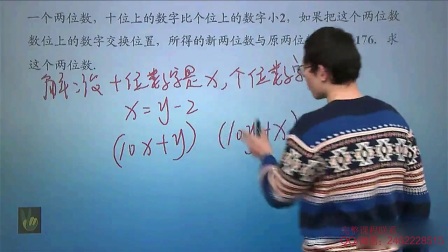 一个两位数，十位上的数字比个位上的数字小2，如果把这个两位数
数位上的数字交换位置，所得的新两位数与原两位 176. 求
这个两位数.
解:设十位数字是x,个位数字
x=y-2
(10x+y) (10y+x)